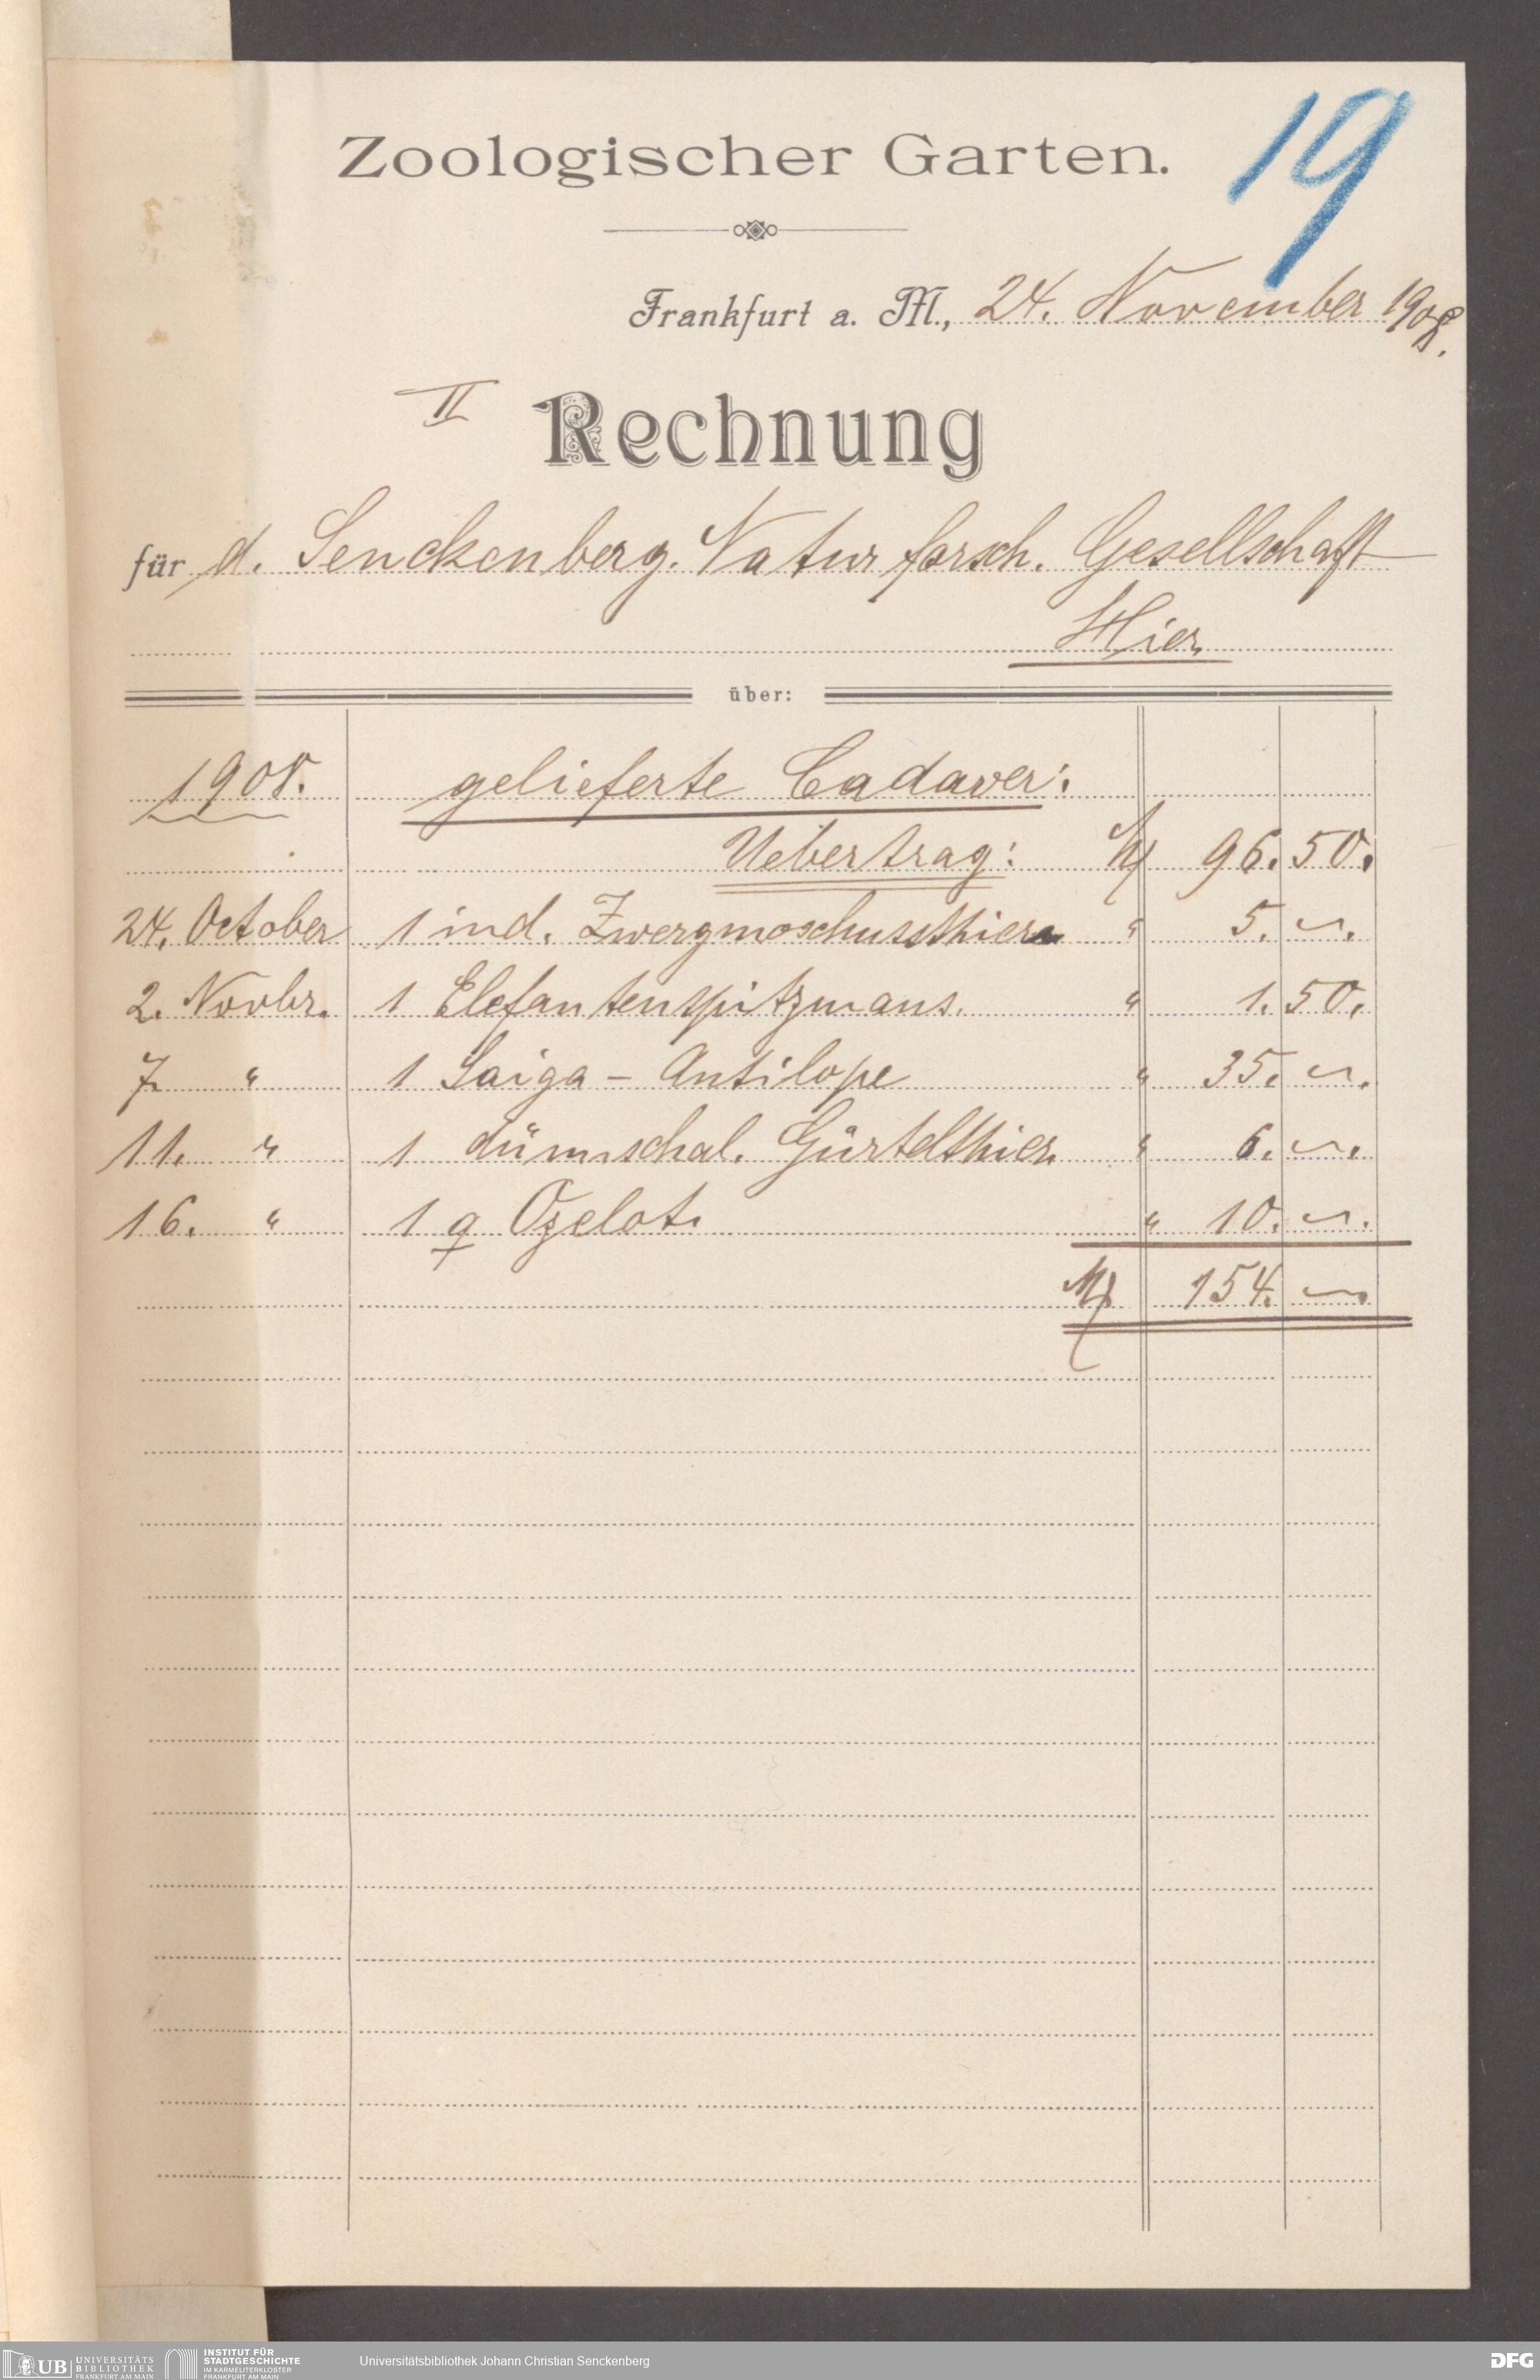 19
Zoologischer Garten.
Frankfurt a. M., 24. November 1908.
II Rechnung
für d. Senckenberg. Naturforsch. Gesellschaft
Hier
über:
1908. gelieferte Cadaver:
Uebertrag: M 96. 50.
24. October 1 ind. Zwergmoschussthier " 5. –.
2. Novbr. 1 Elefantenspitzmaus. " 1. 50.
7. " 1 Saiga - Antilope " 35. –.
11. " 1 dünnschal. Gürtelthier " 6. –.
16. " 1 ♀ Ozelot. " 10. –.
M 154. –.
UB UNIVERSITÄTS BIBLIOTHEK FRANKFURT AM MAIN
INSTITUT FÜR STADTGESCHICHTE IM KARMELITERKLOSTER FRANKFURT AM MAIN
Universitätsbibliothek Johann Christian Senckenberg
DFG